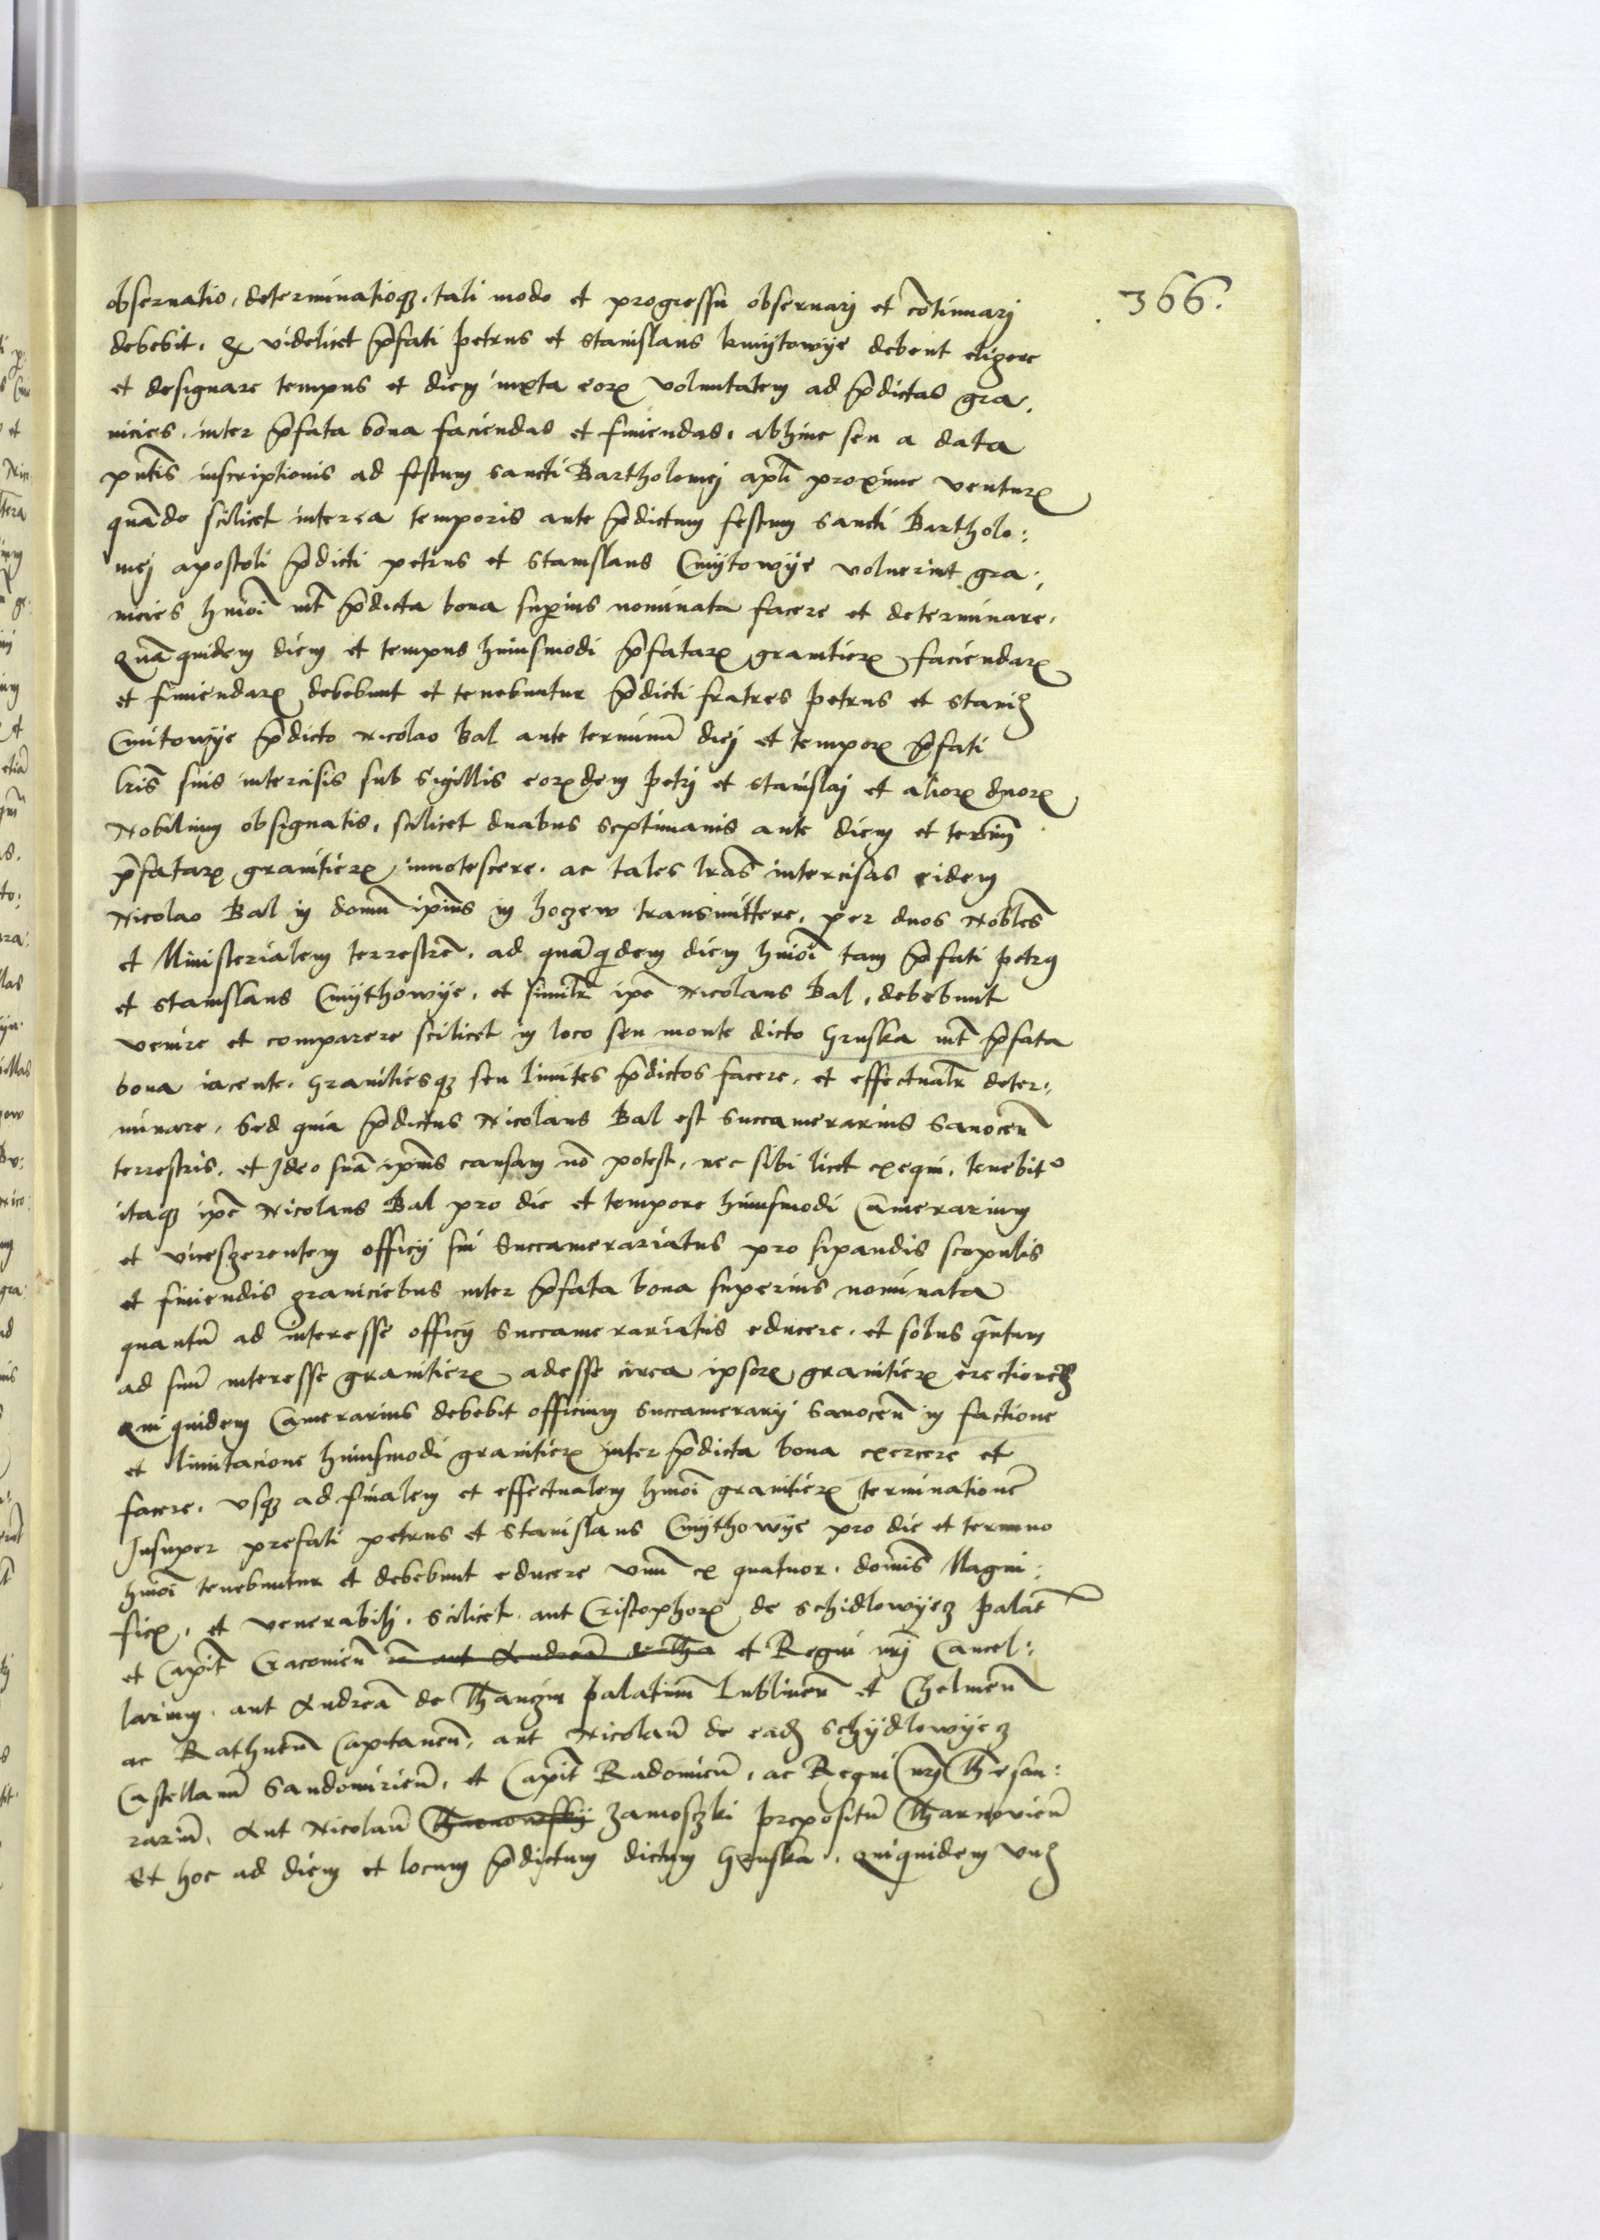 366.
obseruatio, determinatioqȝ, tali modo et progressu obseruarj et cōtinuarj
debebit. Qꝫ videlicet p̄fati petrus et stanislaus kmÿtowÿe debent eligere
et designare tempus et diem iuxta eorꝝ voluntatem ad p̄dictas gra,
nicies. inter p̄fata bona faciendas et finiendas, abhinc seu a data
pn̄tis inscriptionis ad festum sancti Bartholomej apl̄i proxime venturꝝ
quādo scilicet interea temporis ante p̄dictum festum sancti Bartholo:
mej apostoli p̄dicti petrus et stanislaus Cmÿtowÿe voluerint gra:,
nicies hmōi int̄ p̄dicta bona superius nominata facere et determinare.
Quā quidem diem et tempus huiusmodi p̄fatarꝝ granitierꝝ faciendarꝝ
et finiendarꝝ debebunt et tenebuntur p̄dicti fratres petrus et staniȝ
Cmitowÿe p̄dicto Nicolao Bal ante terminū diej et temporꝝ p̄fati
lr̄is suis intercisis sub sigillis eorꝝdem petrj et stanislaj et aliorꝝ duorꝝ
Nobilium obsignatis, scilicet duabus septimanis ante diem et termin̄
p̄fatarꝝ granitierꝝ innotescere. ac tales lr̄as intercisas eidem
Nicolao Bal in domū ipius in hoczew transmittere, per duos Nobles̄
et Ministerialem terrestrē. ad quāqdem diem hmōi tam p̄fati petrꝰ
et stanislaus Cmÿthowÿe, et similr̄ ipē Nicolaus Bal, debebunt
venire et comparere scilicet in loco seu monte dicto Hruska int̄ p̄fata
bona iacente. Granitiesqȝ seu limites p̄dictos facere, et effectualr̄ deter:,
minare. Sed quia p̄dictus Nicolaus Bal est Succamerarius Sanoceñ
terrestris. et Ideo suā ipius causam nō potest, nec sibi licet exequi, tenebitᵒ
itaqȝ ipē Nicolaus Bal pro die et tempore huiusmodi Camerarium
et vicesgerentem officij sui Succamerariatus pro sipandis scopulis
et finiendis graniciebus inter p̄fata bona superius nominata
quantū ad interesse officij Succamerariatus educere. et solus q̄ntum
ad suū interesse granitierꝝ adesse circa ipsorꝝ granitierꝝ erectionēȝ
Qui quidem Camerarius debebit officium Succamerarij Sanoceñ in factione
et limitacione huiusmodi granitierꝝ inter p̄dicta bona exercere et
facere. vsqȝ ad finalem et effectualem hmōi granitierꝝ terminationē
Insuper prefati petrus et stanislaus Cmÿthowÿe pro die et termino
hmōi tenebuntur et debebunt educere vnū ex quatuor. domis̄ Magni:
ficꝝ, et venerabilj. scilicet. aut Cristophorꝝ de Schidlowÿecz palat̄
et Capit̄ Cracouieñ et Regni nr̄j Cancel:
larium. aut Andreā de Thanczin palatinū Lublineñ et Chelmeñ
ac Rathneñ Capitaneū, aut Nicolaū de eadȝ Schÿdlowÿecz
Castellanū Sandomirieñ, et Capit̄ Radomieñ, ac Regni nr̄j Thesau:
rariū. Aut Nicolaū Tharnowsskÿ Zamosczki prepositū Tharnovieñ
Et hoc ad diem et locum p̄dictum dictum Hruska. Qui quidem vnȝ